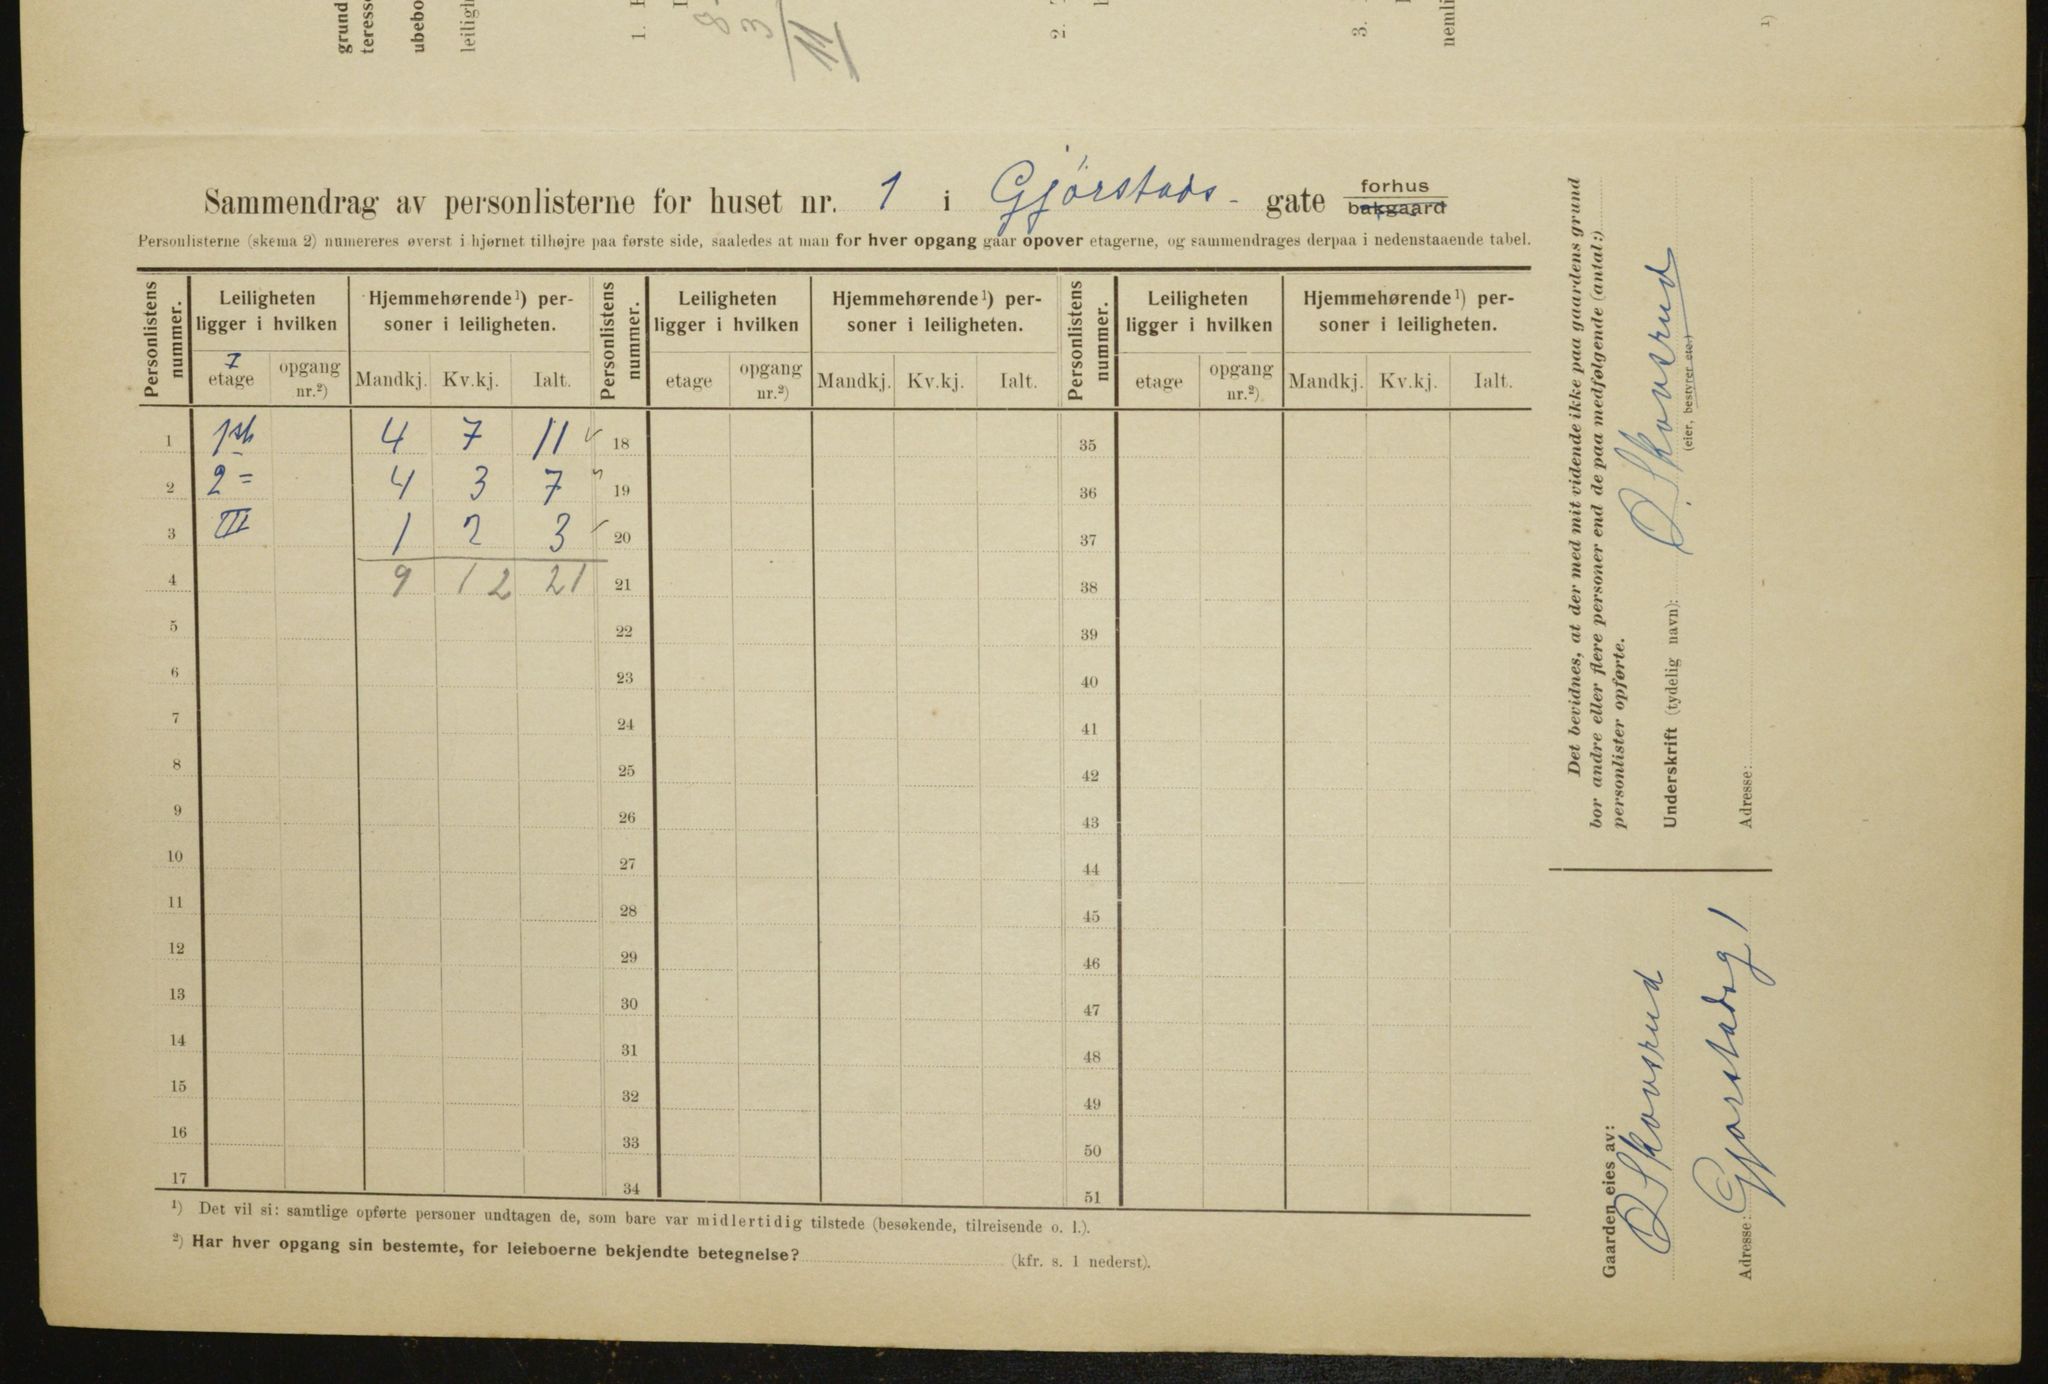 grund
teresse
ubebo
leiligh
1.
8
3
11
2.
3.
nemli
1)
Sammendrag av personlisterne for huset nr. 1 i Gjørstads- gate forhus
bakgaard
Personlisterne (skema 2) numereres øverst i hjørnet tilhøjre paa første side, saaledes at man for hver opgang gaar opover etagerne, og sammendrages derpaa i nedenstaaende tabel.
Personlistens nummer. Leiligheten ligger i hvilken Hjemmehørende¹) personer i leiligheten. Personlistens nummer. Leiligheten ligger i hvilken Hjemmehørende¹) personer i leiligheten. Personlistens nummer. Leiligheten ligger i hvilken Hjemmehørende¹) personer i leiligheten.
7
etage opgang nr.²) Mandkj. Kv.kj. Ialt. etage opgang nr.²) Mandkj. Kv.kj. Ialt. etage opgang nr.²) Mandkj. Kv.kj. Ialt.
1 1st 4 7 11 ✓ 18 35
2 2 = 4 3 7 19 36
3 III 1 2 3 ✓ 20 37
4 9 12 21 21 38
5 22 39
6 23 40
7 24 41
8 25 42
9 26 43
10 27 44
11 28 45
12 29 46
13 30 47
14 31 48
15 32 49
16 33 50
17 34 51
¹) Det vil si: samtlige opførte personer undtagen de, som bare var midlertidig tilstede (besøkende, tilreisende o. l.).
²) Har hver opgang sin bestemte, for leieboerne bekjendte betegnelse? (kfr. s. 1 nederst).
Det bevidnes, at der med mit vidende ikke paa gaardens grund
bor andre eller flere personer end de paa medfølgende (antal:)
personlister opførte.
Underskrift (tydelig navn): O. Skovsrud
(eier, bestyrer etc.)
Adresse:
Gaarden eies av:
O Skovsrud
Adresse: Gjørstadsg 1